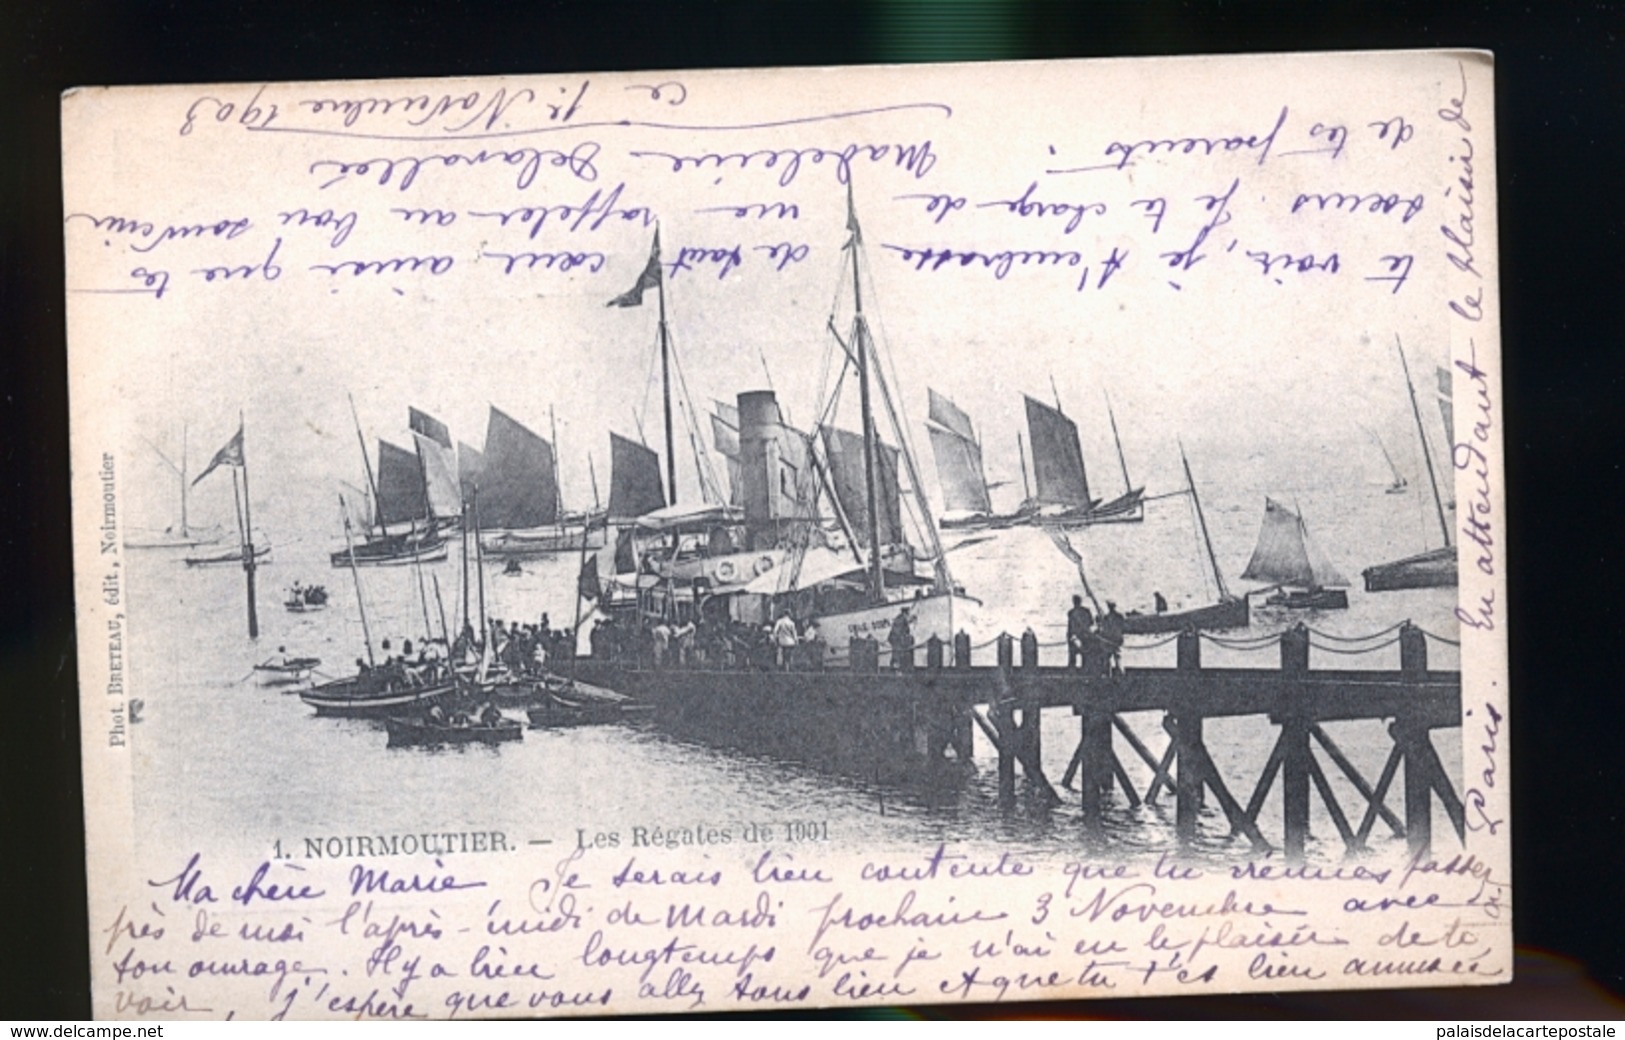 1. NOIRMOUTIER. — Les Régates de 1901
Phot. BRETEAU, édit, Noirmoutier
Ma chère Marie Je serais bien contente que tu viennes passer
près de moi l'après-midi de Mardi prochain 3 Novembre avec
ton ouvrage. Il y a bien longtemps que je n'ai eu le plaisir de te
voir, j'espère que vous allez tous bien et que tu t'es bien amusée
à Paris. En attendant le plaisir de
te voir, je t'embrasse de tout cœur ainsi que tes
sœurs. Je te charge de me rappeler au bon souvenir
de tes parents.
Madeleine
ce 1er Novembre 1903
www.delcampe.net
palaisdelacartepostale